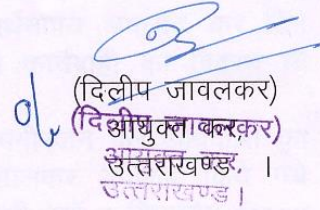 (दिलीप जावलकर)
आयुक्त कर,
उत्तराखण्ड, ।
(दिलीप जावलकर)
आयुक्त कर,
उत्तराखण्ड।